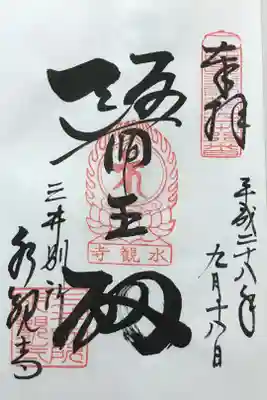 奉拝
平成二十八年
九月十八日
醫王殿
三井別所
水観寺
水観寺